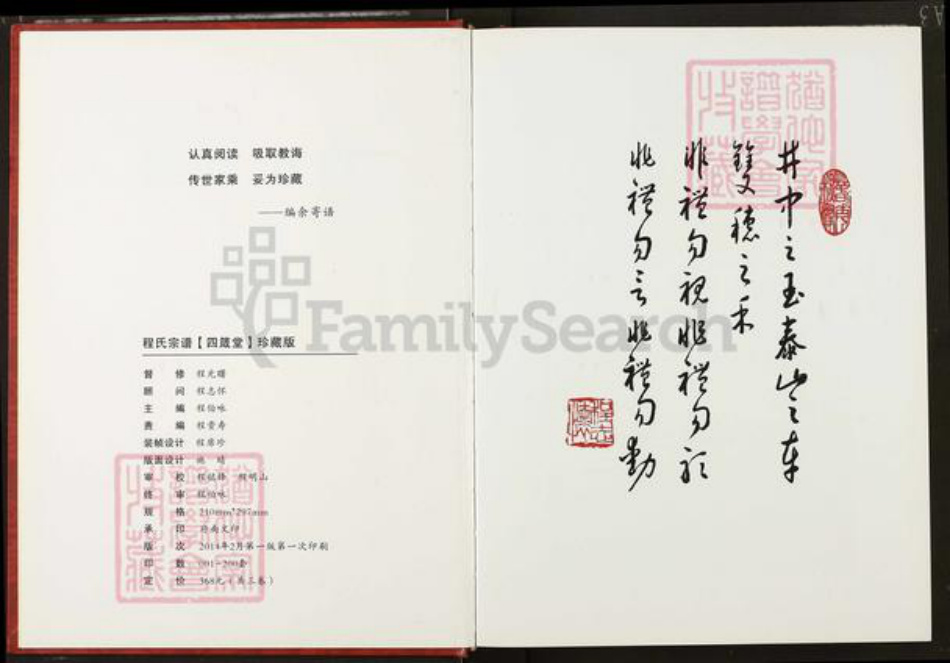 认真阅读 吸取教诲
传世家乘 妥为珍藏
——编余寄语
程氏宗谱【四箴堂】珍藏版
督修 程光曙
顾问 程志怀
主编 程伯咏
责编 程贵寿
装帧设计 程席珍
版面设计 姚靖
审校 程明山
终审 程伯咏
规格 210mm*297mm
承印
版次 2014年2月第一版第一次印刷
印数 001-200套
定价 368元(共三卷)
FamilySearch
井中之玉泰山之车
双穗之禾
非禮勿視非禮勿聽
非禮勿言非禮勿動
譜學會
收藏